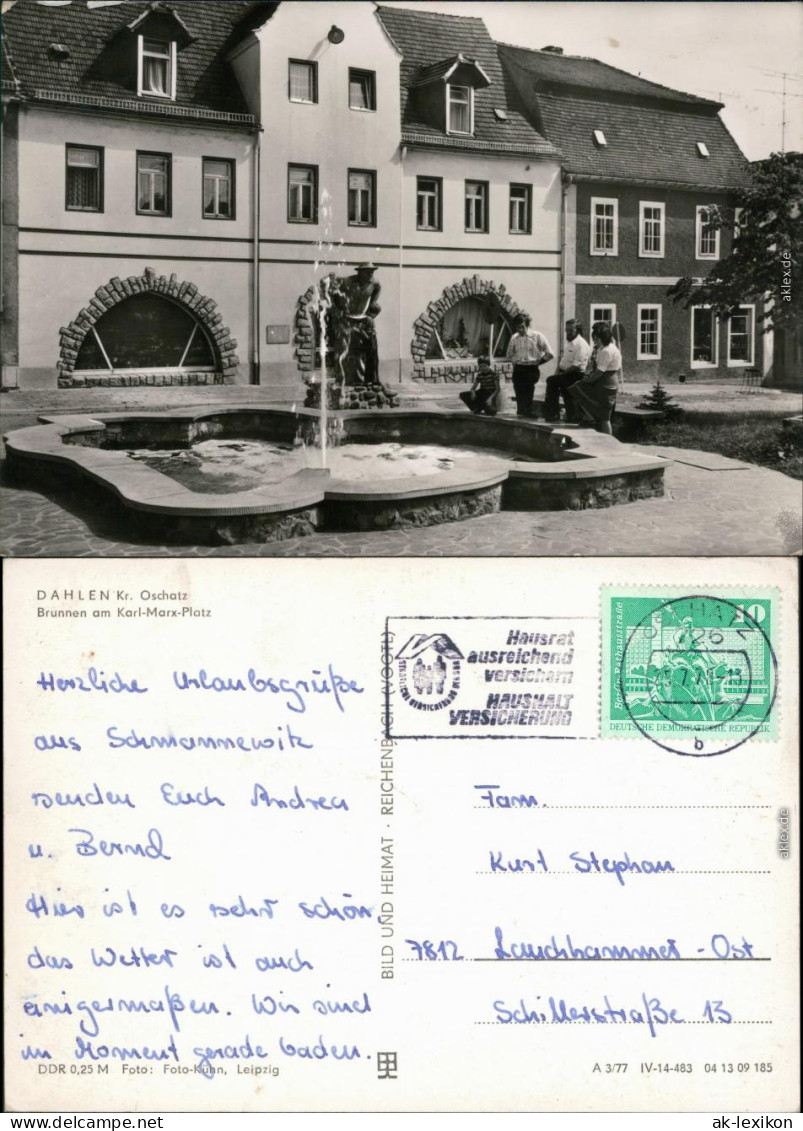 DAHLEN Kr. Oschatz
Brunnen am Karl-Marx-Platz
Herzliche Urlaubsgrüße
aus Schmannewitz
senden Euch Andrea
u. Bernd
Hier ist es sehr schön,
das Wetter ist auch
einigermaßen. Wir sind
im Moment gerade baden.
DDR 0,25 M Foto: Foto-Kühn, Leipzig
BILD UND HEIMAT · REICHENBACH (VOGTL)
Hausrat
ausreichend
versichern
HAUSHALT
VERSICHERUNG
OSCHATZ
726
b
10
Berlin, Rathausstraße
DEUTSCHE DEMOKRATISCHE REPUBLIK
Fam.
Kurt Stephan
7812 Lauchhammer-Ost
Schillerstraße 13
A 3/77 IV-14-483 04 13 09 185
aklex.de
aklex.de
www.ak-ansichtskarten.de
ak-lexikon